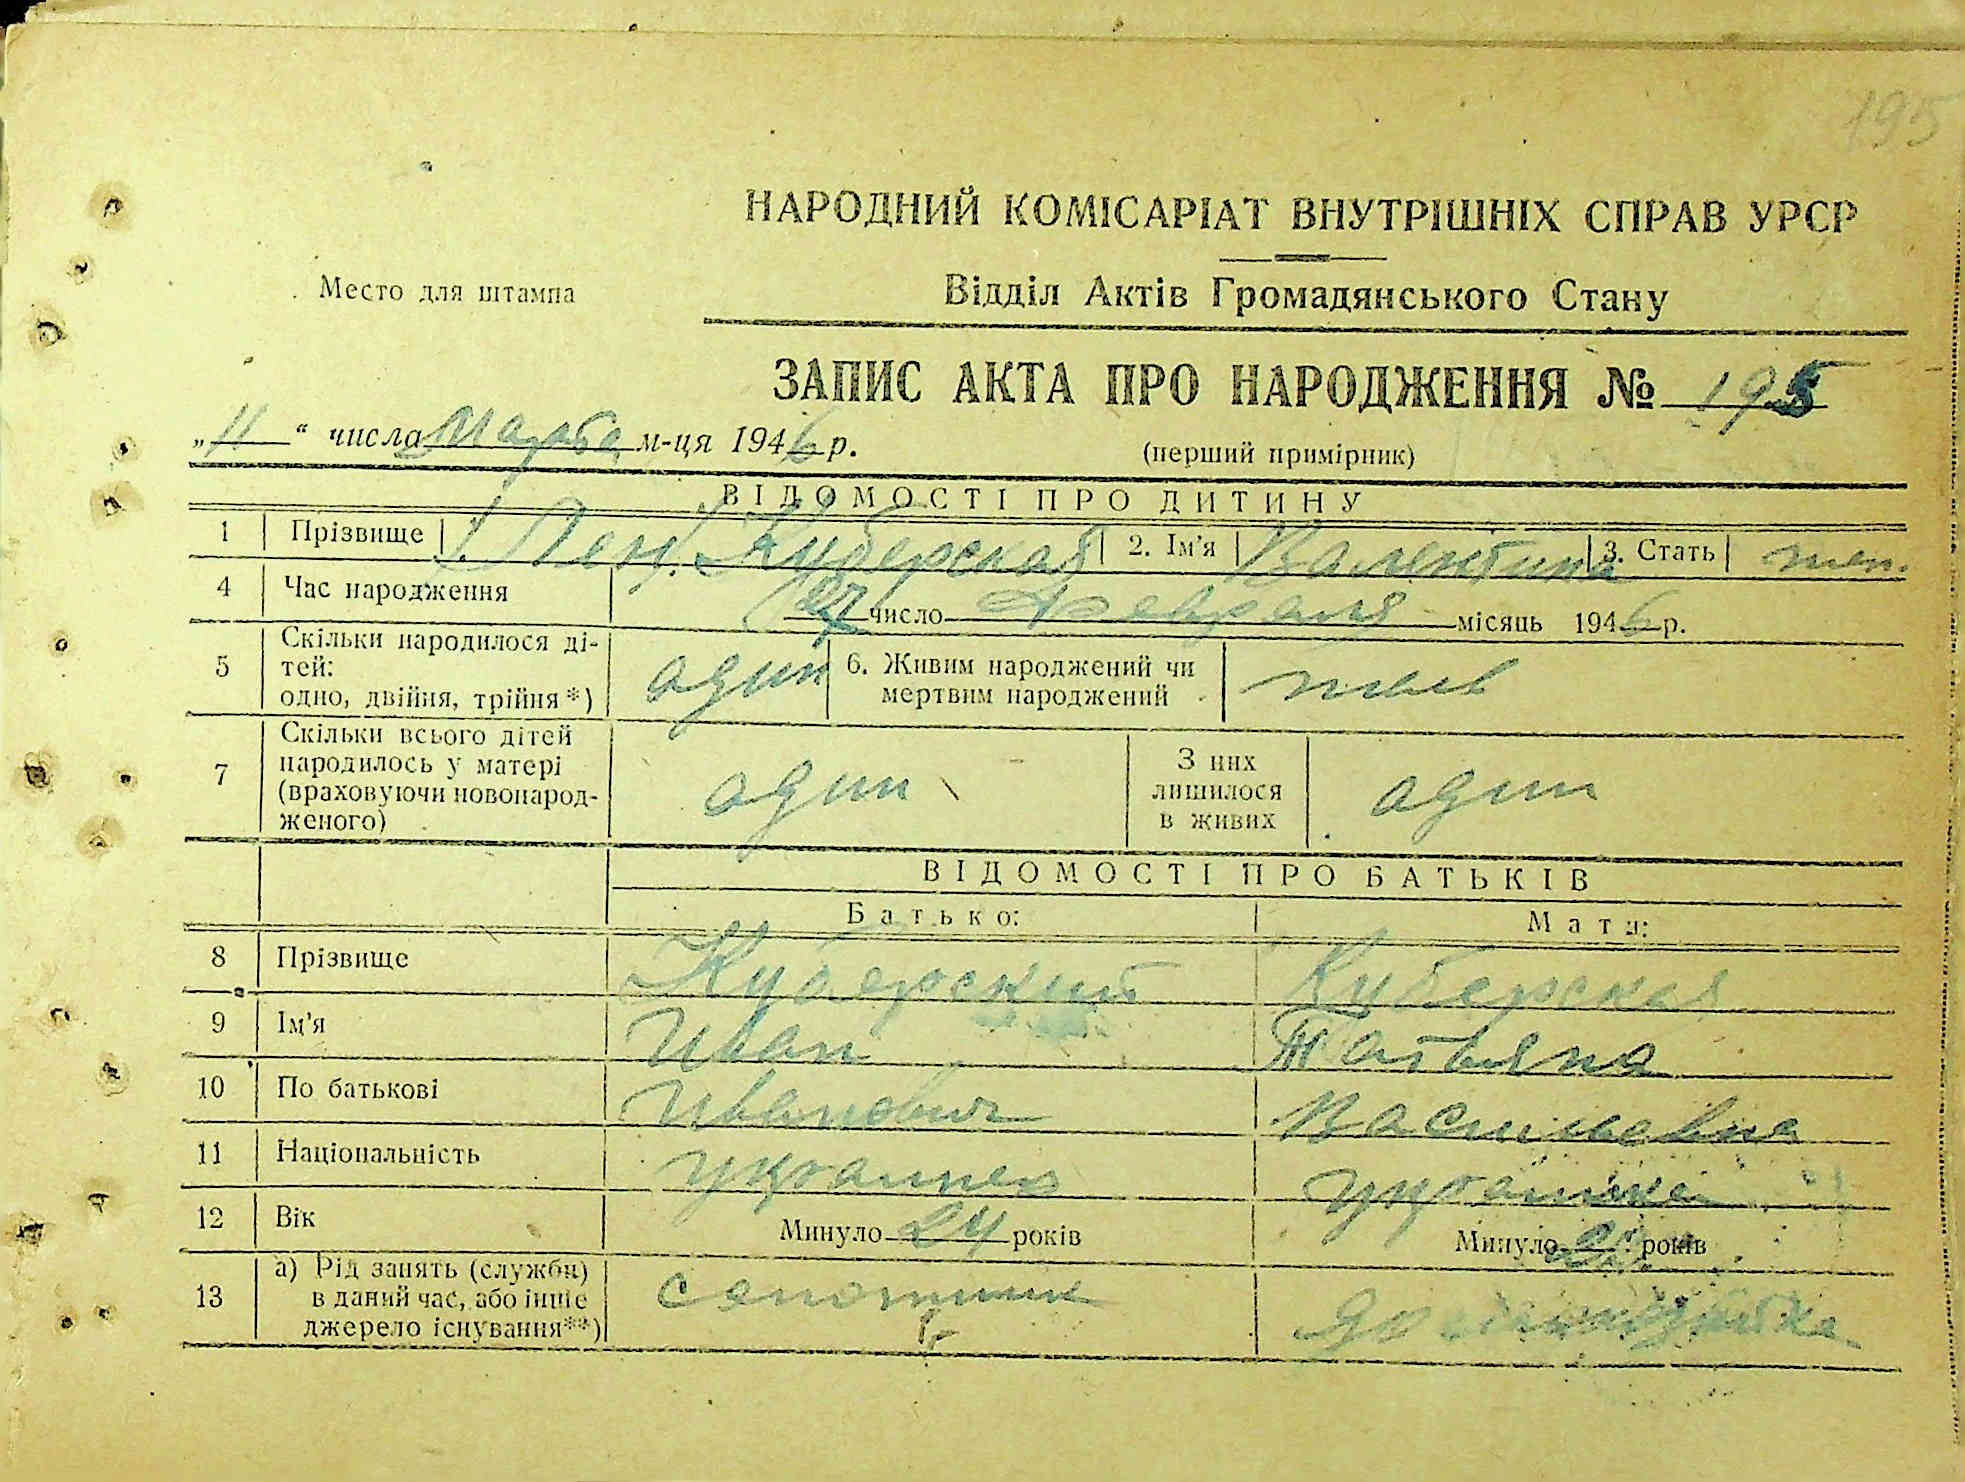 195
НАРОДНИЙ КОМІСАРІАТ ВНУТРІШНІХ СПРАВ УРСР
Место для штампа
Відділ Актів Громадянського Стану
ЗАПИС АКТА ПРО НАРОДЖЕННЯ № 195
„11“ числа Марта м-ця 1946 р.
(перший примірник)
ВІДОМОСТІ ПРО ДИТИНУ
1 Прізвище Куберская 2. Ім'я Валентина 3. Стать жен.
4 Час народження 27 число Февраля місяць 1946 р.
5 Скільки народилося ді-
тей:
одно, двійня, трійня*) один
6. Живим народжений чи
мертвим народжений жив
7 Скільки всього дітей
народилось у матері
(враховуючи новонарод-
женого) один
З них
лишилося
в живих один
ВІДОМОСТІ ПРО БАТЬКІВ
Батько: Мати:
8 Прізвище Куберский Куберская
9 Ім'я Иван Татьяна
10 По батькові Иванович Васильевна
11 Національність украинец украинка
12 Вік Минуло 24 років Минуло років
13 а) Рід занять (служби)
в даний час, або інше
джерело існування**) сапожник домохозяйка